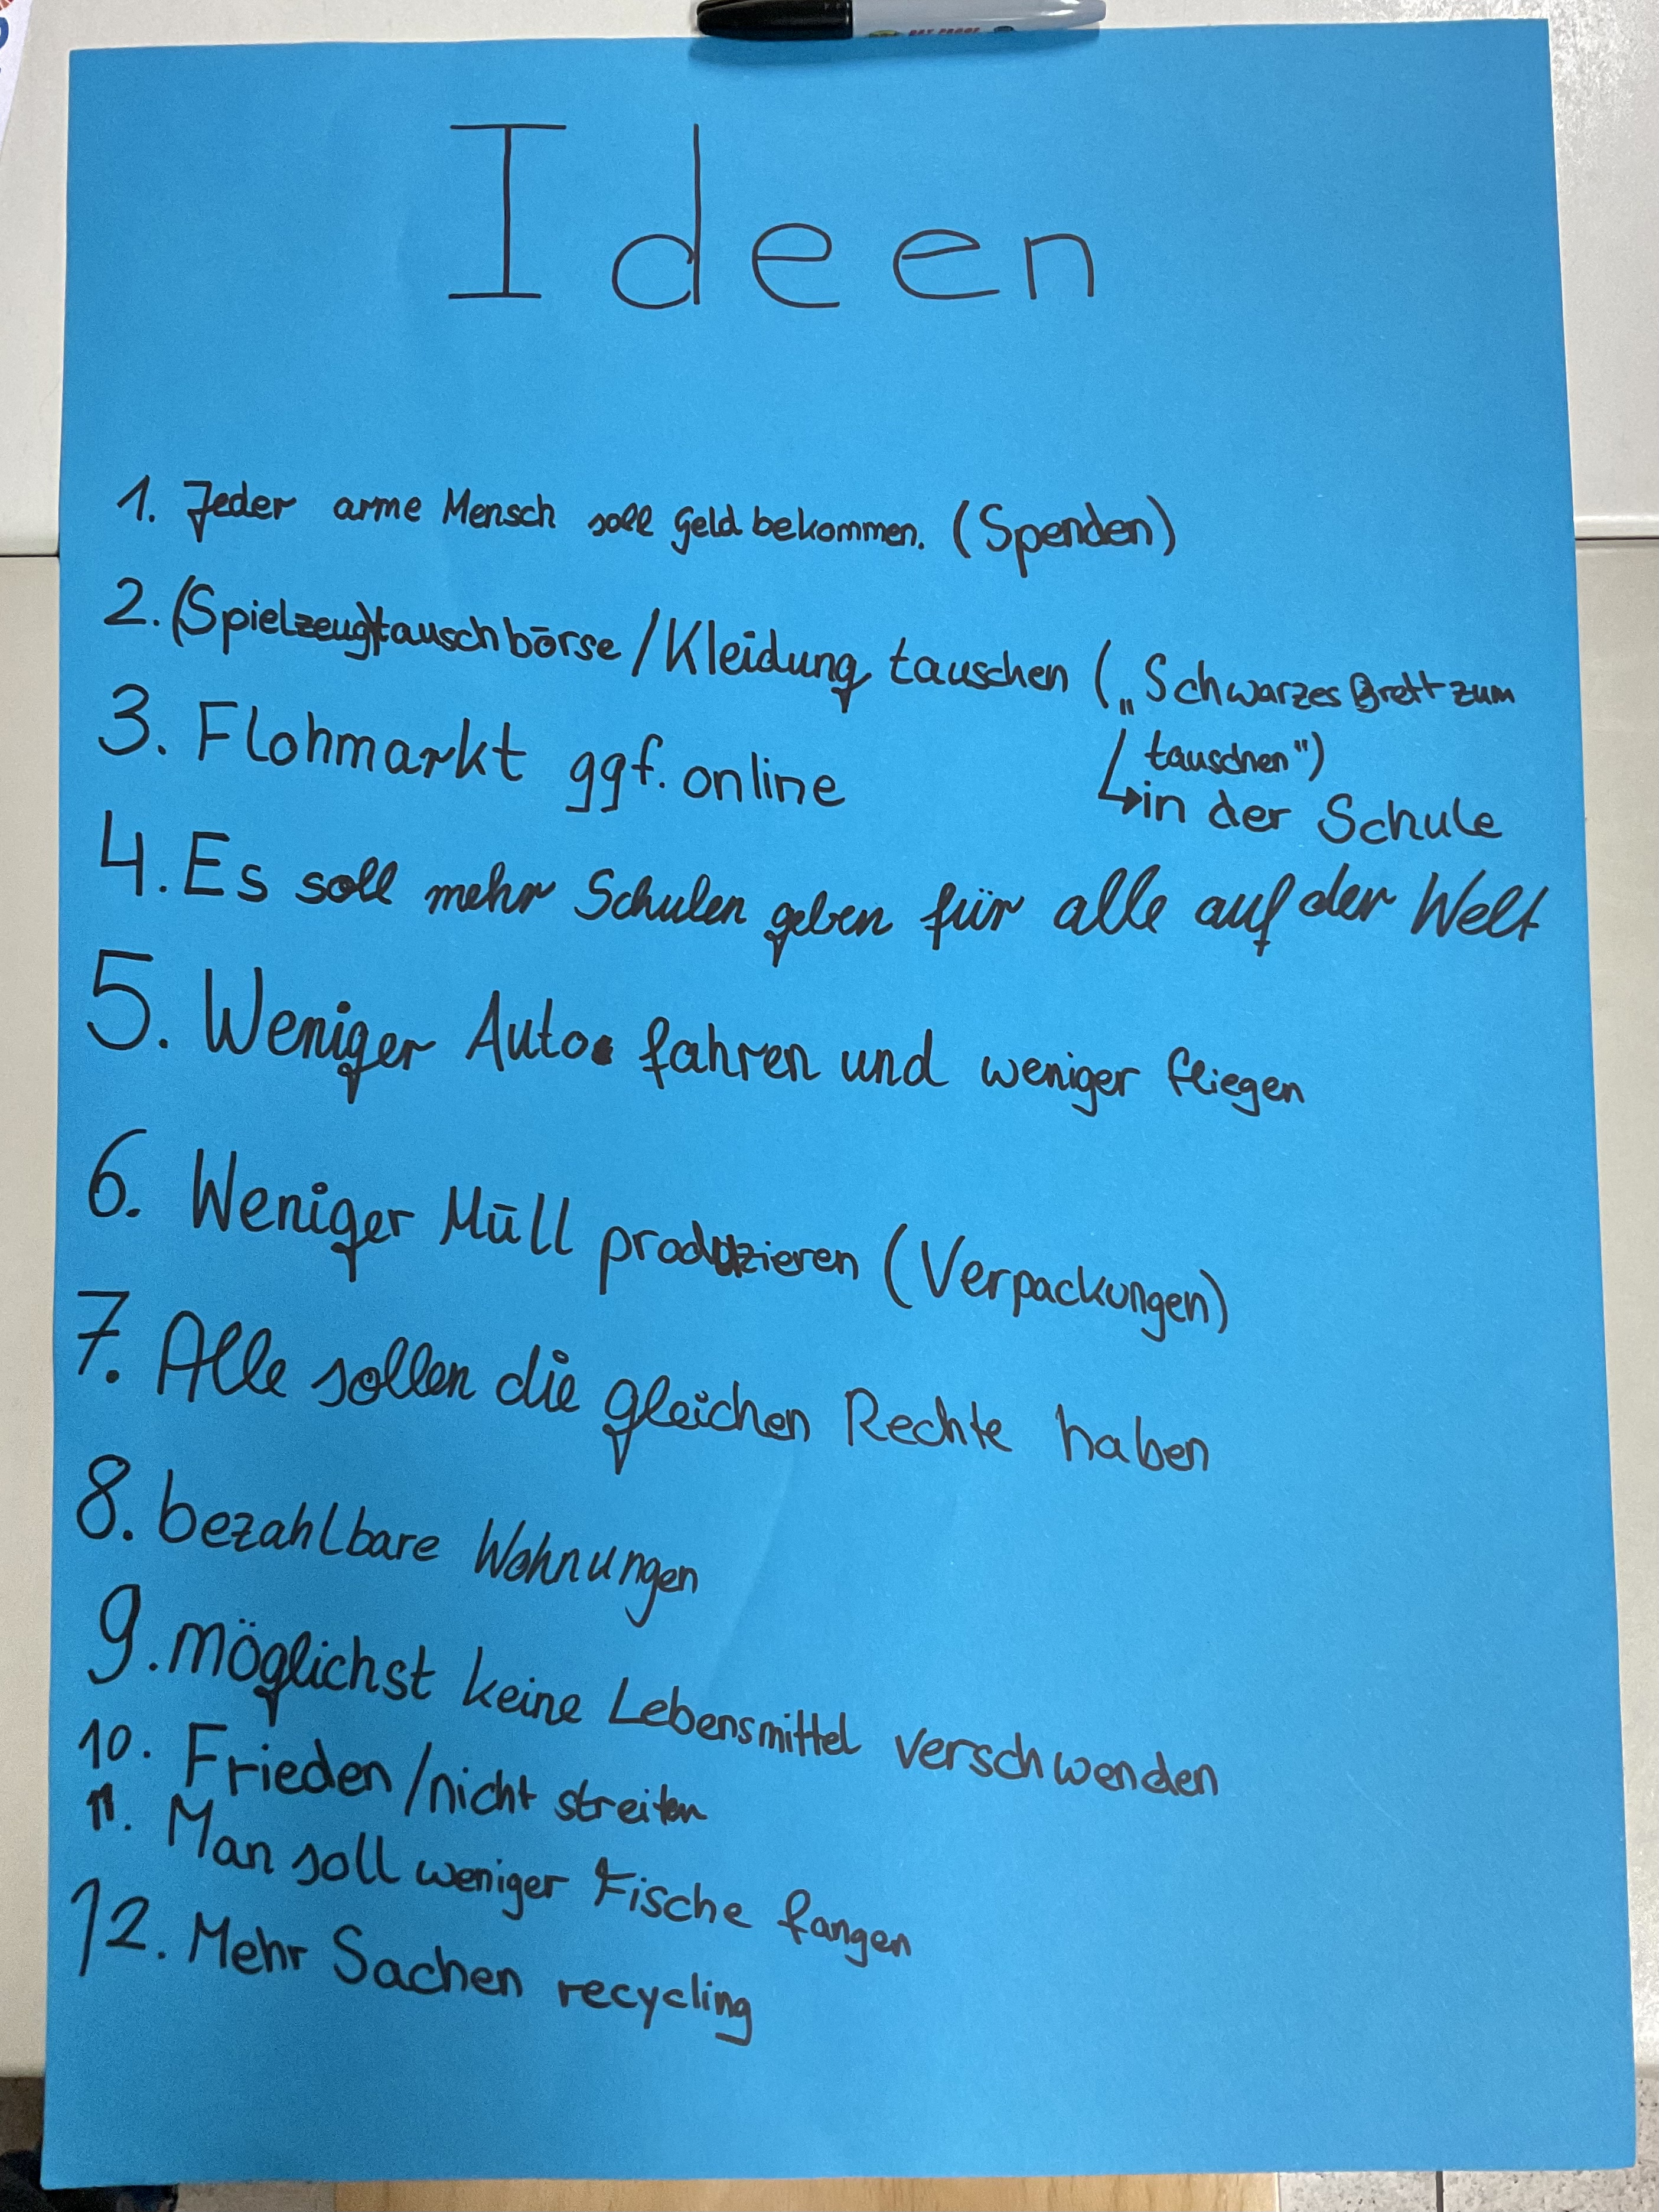 Ideen
1. Jeder arme Mensch soll Geld bekommen. (Spenden)
2. (Spielzeug)tauschbörse/Kleidung tauschen („Schwarzes Brett zum
tauschen")
↳in der Schule
3. Flohmarkt ggf. online
4. Es soll mehr Schulen geben für alle auf der Welt
5. Weniger Auto fahren und weniger fliegen
6. Weniger Müll produzieren (Verpackungen)
7. Alle sollen die gleichen Rechte haben
8. bezahlbare Wohnungen
9. möglichst keine Lebensmittel verschwenden
10. Frieden/nicht streiten
11. Man soll weniger Fische fangen
12. Mehr Sachen recycling